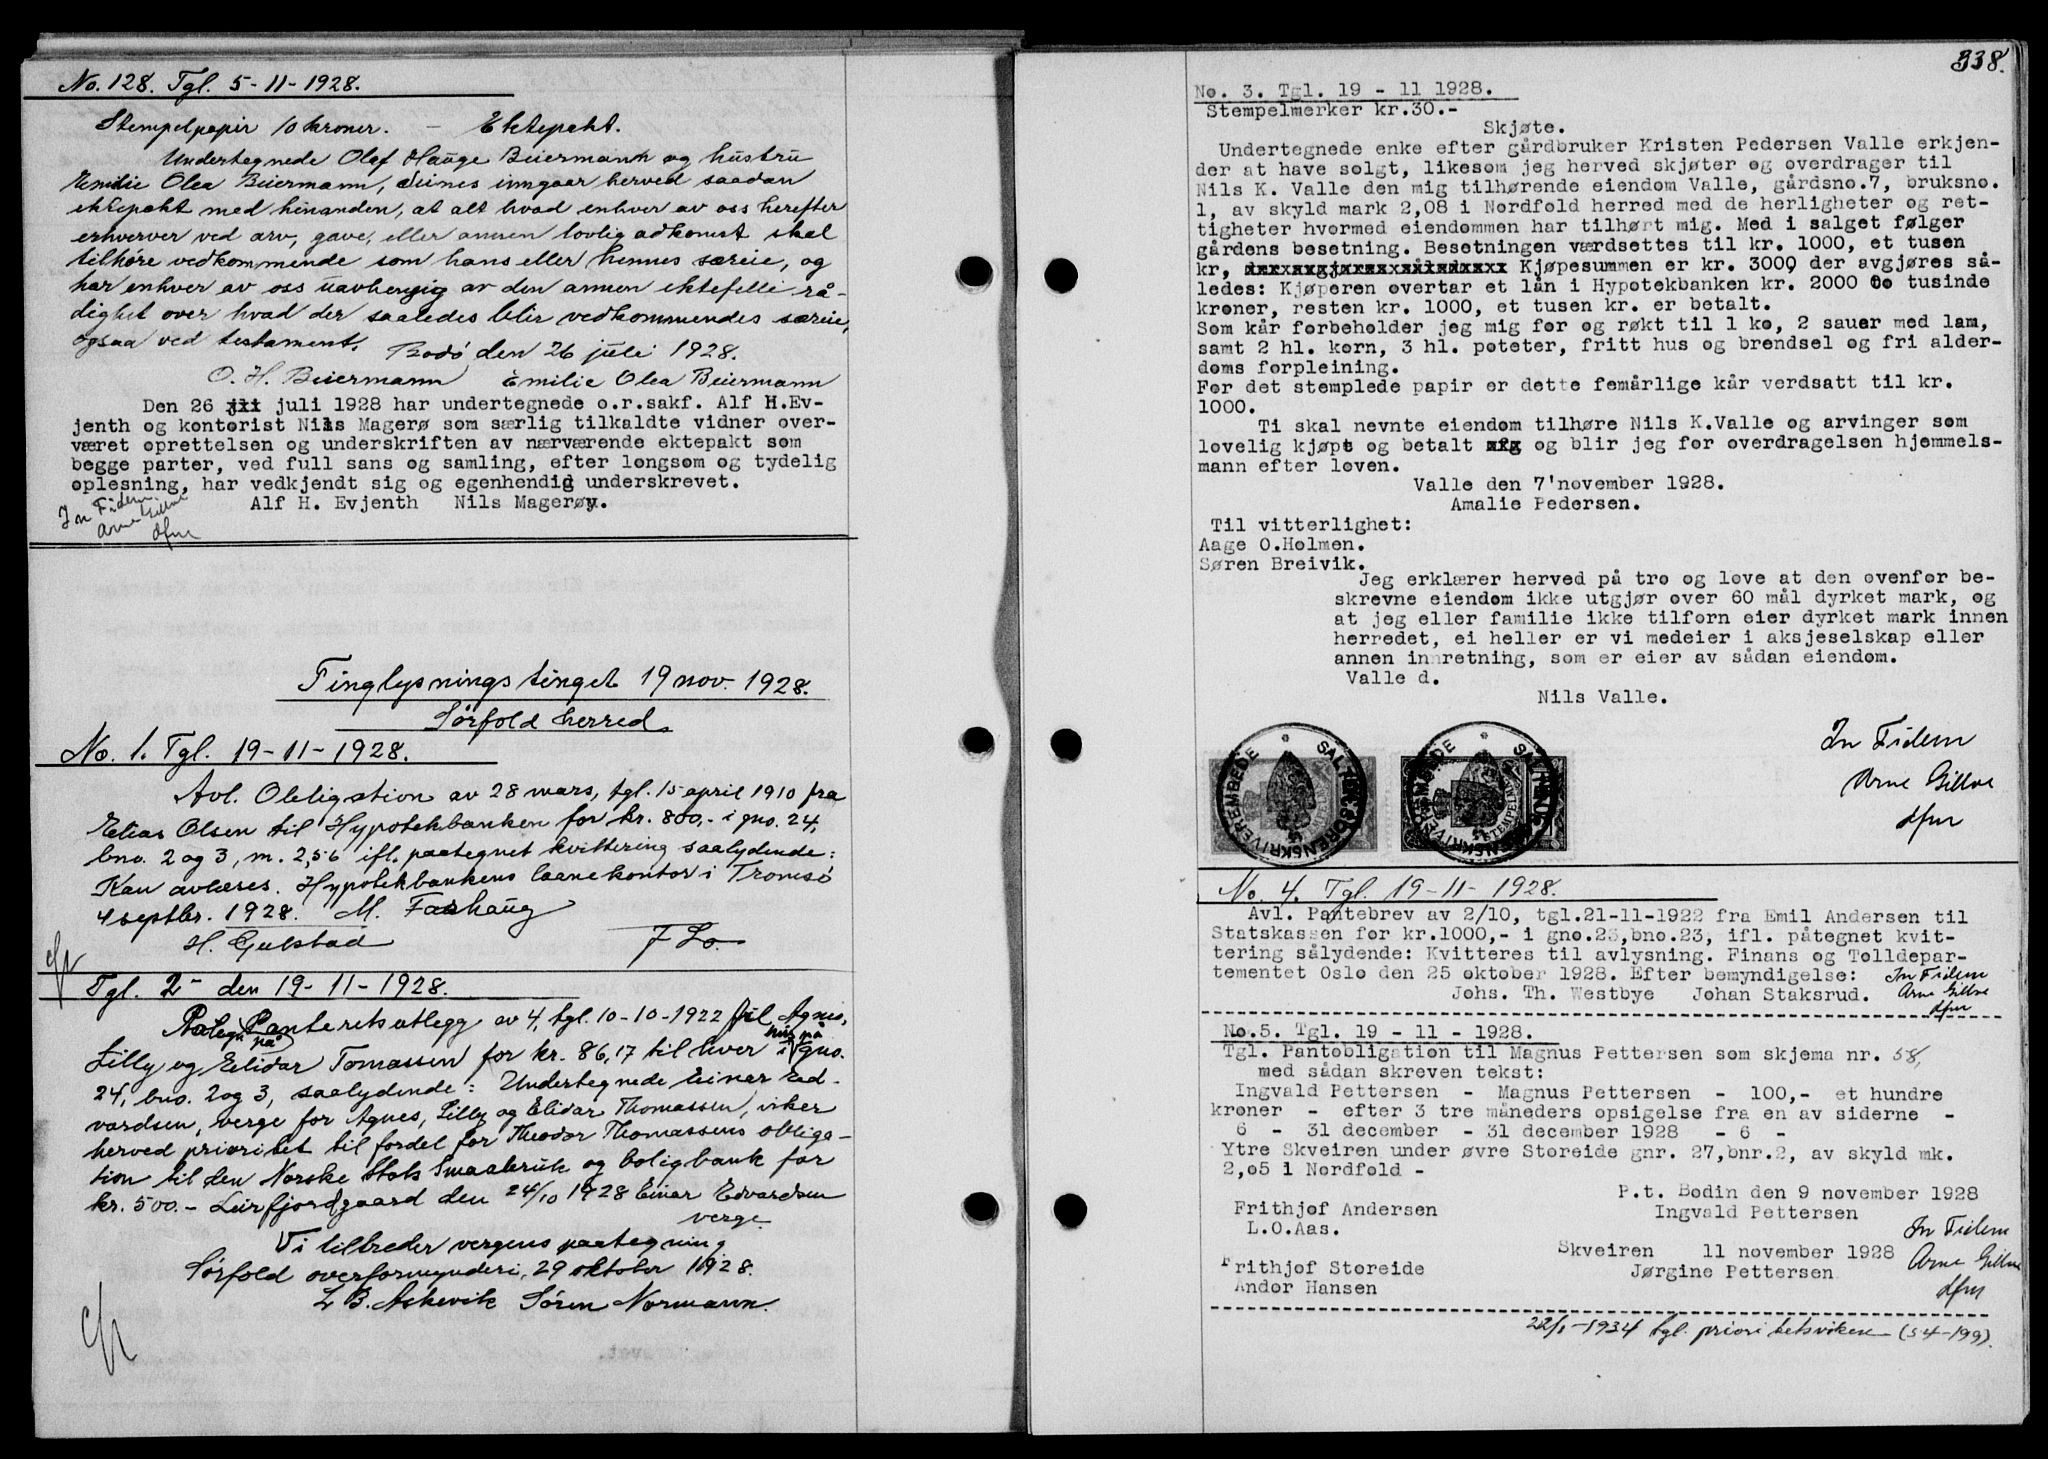 No. 128. Tgl. 5-11-1928.
Stempelpapir 10 kroner. - Ektepakt.
Undertegnede Olaf Hauge Beiermann og hustru
Emilie Olea Beiermann, Seines inngaar herved saadan
ektepakt med hinanden, at alt hvad enhver av oss herefter
erhverver ved arv, gave, eller annen lovlig adkomst skal
tilhøre vedkommende som hans eller hennes særeie, og
har enhver av oss uavhengig av den annen ektefelle rå-
dighet over hvad der saaledes blir vedkommendes særeie,
ogsaa ved testament. Bodø den 26 juli 1928.
O. H. Beiermann Emilie Olea Beiermann
Den 26 juli 1928 har undertegnede o.r.sakf. Alf H.Ev-
jenth og kontorist Nils Magerø som særlig tilkaldte vidner over-
været oprettelsen og underskriften av nærværende ektepakt som
begge parter, ved full sans og samling, efter langsom og tydelig
oplesning, har vedkjendt sig og egenhendig underskrevet.
Alf H. Evjenth Nils Magerøy.
In Fidem
Arne Gillne
dfm
Tinglysningstinget 19 nov. 1928.
Sørfold herred
No. 1. Tgl. 19-11-1928.
Avl. Obligation av 28 mars, tgl. 15 april 1910 fra
Elias Olsen til Hypotekbanken for kr. 800,- i gno. 24,
bno. 2 og 3, m. 2,56 ifl. paategnet kvittering saalydende:
Kan avlæses. Hypotekbankens laanekontor i Tromsø
4 septbr. 1928. M. Faxhaug
H. Gulstad
F Lo.
Tgl. 2 - den 19-11-1928.
Pategn. på Panteretsutlegg av 4, tgl. 10-10-1922 til Agnes,
Lilly og Elidar Tomassen for kr. 86,17 til hver i gno.
24, bno. 2 og 3, saalydende: Undertegnede Einar Ed-
vardsen, verge for Agnes, Lilly og Elidar Thomassen, viker
herved prioritet til fordel for Theodor Thomassens obliga-
tion til den Norske Stats Smaabruk og boligbank for
kr. 500.- Leirfjordgaard den 24/10 1928 Einar Edvardsen
verge.
Vi tiltreder vergens paategning
Sørfold overformynderi, 29 oktober 1928.
L B. Askevik Søren Normann.
338.
No. 3. Tgl. 19 - 11 1928.
Stempelmerker kr.30.-
Skjøte.
Undertegnede enke efter gårdbruker Kristen Pedersen Valle erkjen-
der at have solgt, likesom jeg herved skjøter og overdrager til
Nils K. Valle den mig tilhørende eiendom Valle, gårdsno.7, bruksno.
1, av skyld mark 2,08 i Nordfold herred med de herligheter og ret-
tigheter hvormed eiendommen har tilhørt mig. Med i salget følger
gårdens besetning. Besetningen værdsettes til kr. 1000, et tusen
kr, Kjøpesummen er kr. 3000 der avgjøres så-
ledes: Kjøperen overtar et lån i Hypotekbanken kr. 2000 to tusinde
kroner, resten kr. 1000, et tusen kr. er betalt.
Som kår forbeholder jeg mig for og røkt til 1 ko, 2 sauer med lam,
samt 2 hl. korn, 3 hl. poteter, fritt hus og brendsel og fri alder-
doms forpleining.
For det stemplede papir er dette femårlige kår verdsatt til kr.
1000.
Ti skal nevnte eiendom tilhøre Nils K.Valle og arvinger som
lovelig kjøpt og betalt og blir jeg for overdragelsen hjemmels-
mann efter loven.
Valle den 7'november 1928.
Amalie Pedersen.
Til vitterlighet:
Aage O.Holmen.
Søren Breivik.
Jeg erklærer herved på tro og love at den ovenfor be-
skrevne eiendom ikke utgjør over 60 mål dyrket mark, og
at jeg eller familie ikke tilforn eier dyrket mark innen
herredet, ei heller er vi medeier i aksjeselskap eller
annen innretning, som er eier av sådan eiendom.
Valle d.
Nils Valle.
In Fidem
Arne Gillne
dfm
SALTEN SORENSKRIVEREMBEDE
SALTEN SORENSKRIVEREMBEDE
No. 4. Tgl. 19-11-1928.
Avl. Pantebrev av 2/10, tgl.21-11-1922 fra Emil Andersen til
Statskassen for kr.1000,- i gno.23,bno.23, ifl. påtegnet kvit-
tering sålydende: Kvitteres til avlysning. Finans og Tolldepar-
tementet Oslo den 25 oktober 1928. Efter bemyndigelse:
Johs. Th. Westbye Johan Staksrud.
In Fidem
Arne Gillne
dfm
No.5. Tgl. 19 - 11 - 1928.
Tgl. Pantobligation til Magnus Pettersen som skjema nr. 58,
med sådan skreven tekst:
Ingvald Pettersen - Magnus Pettersen - 100,- et hundre
kroner - efter 3 tre måneders opsigelse fra en av siderne -
6 - 31 december - 31 december 1928 - 6 -
Ytre Skveiren under øvre Storeide gnr. 27,bnr.2, av skyld mk.
2,05 i Nordfold -
P.t. Bodin den 9 november 1928
Frithjof Andersen Ingvald Pettersen
L.O.Aas.
Skveiren 11 november 1928
Frithjof Storeide Jørgine Pettersen
Andor Hansen
In Fidem
Arne Gillne
dfm
22/1-1934 tgl. prioritetsvikelse (54-199).